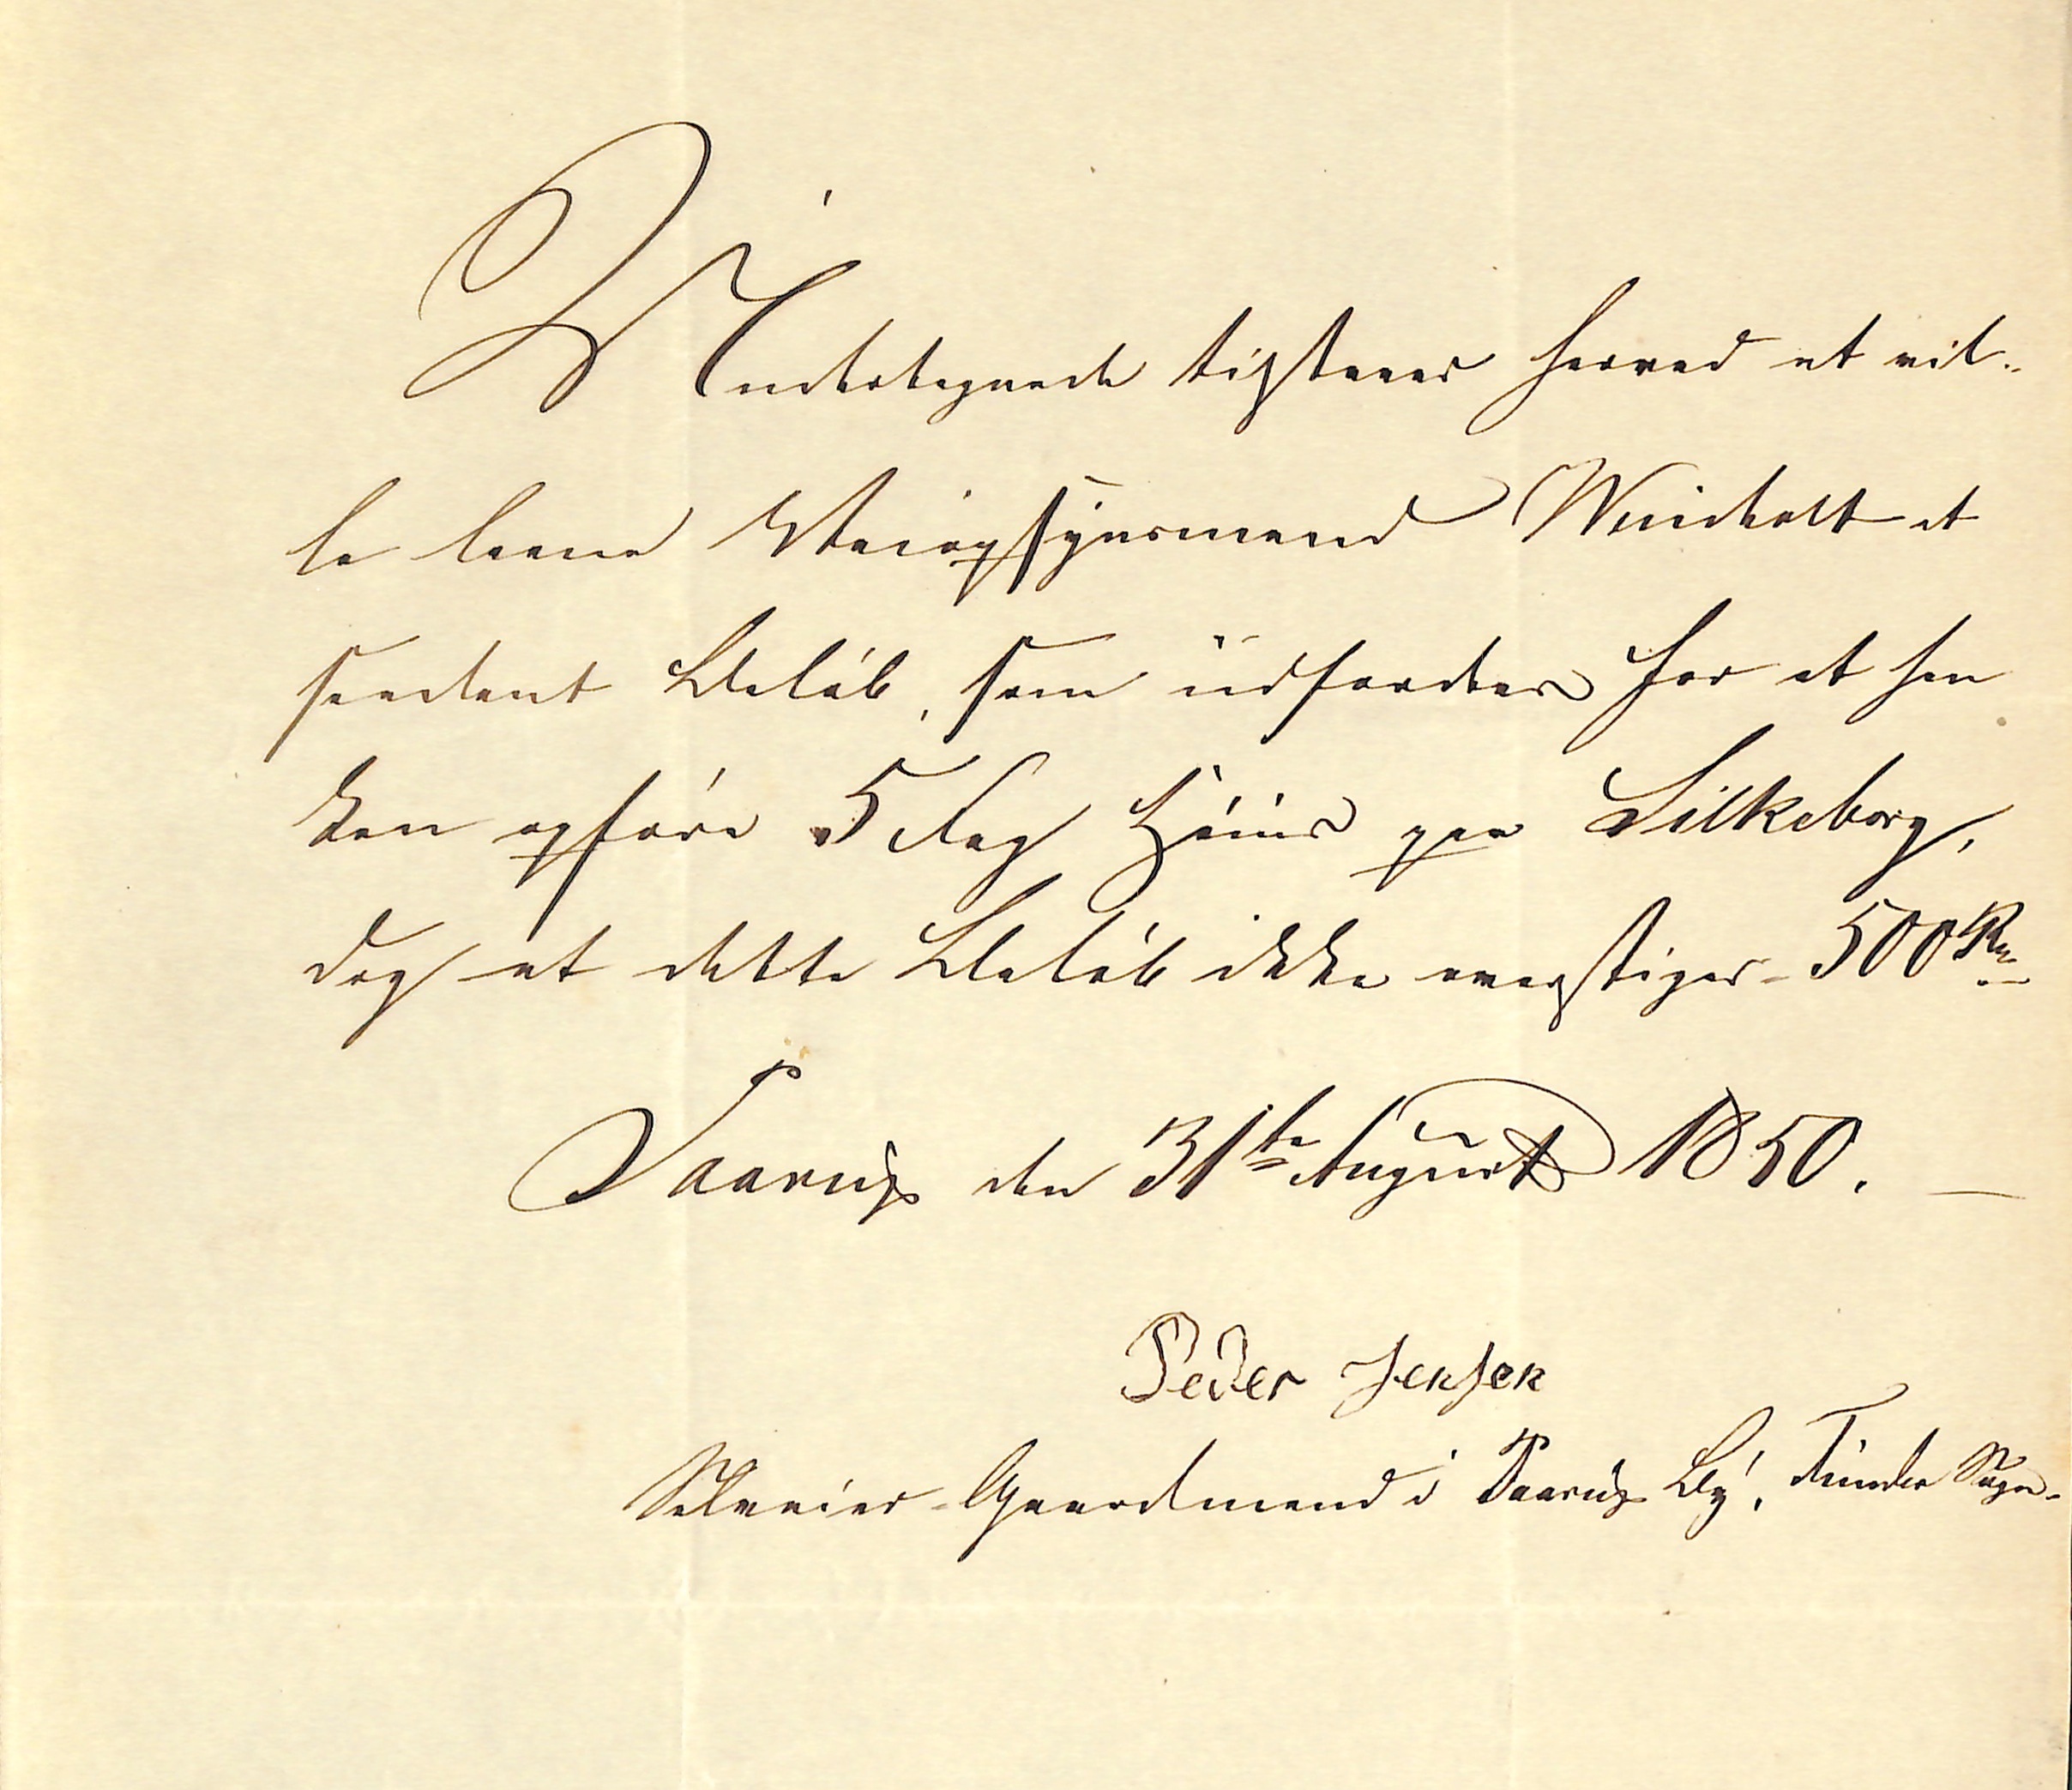 Undertegnede tilstaaer herved at vil-
le laane Veiopsynsmand Weideldt et
saadant Beløb, som udfordres for at han
kan opføre 5 Fag Huus paa Silkeborg,
dog at dette Beløb ikke overstiger 500 Rd
Taarup den 31te August 1850.
Peder Jensen
Selveier-Gaardmand i Taarup By, Funder Sogn.